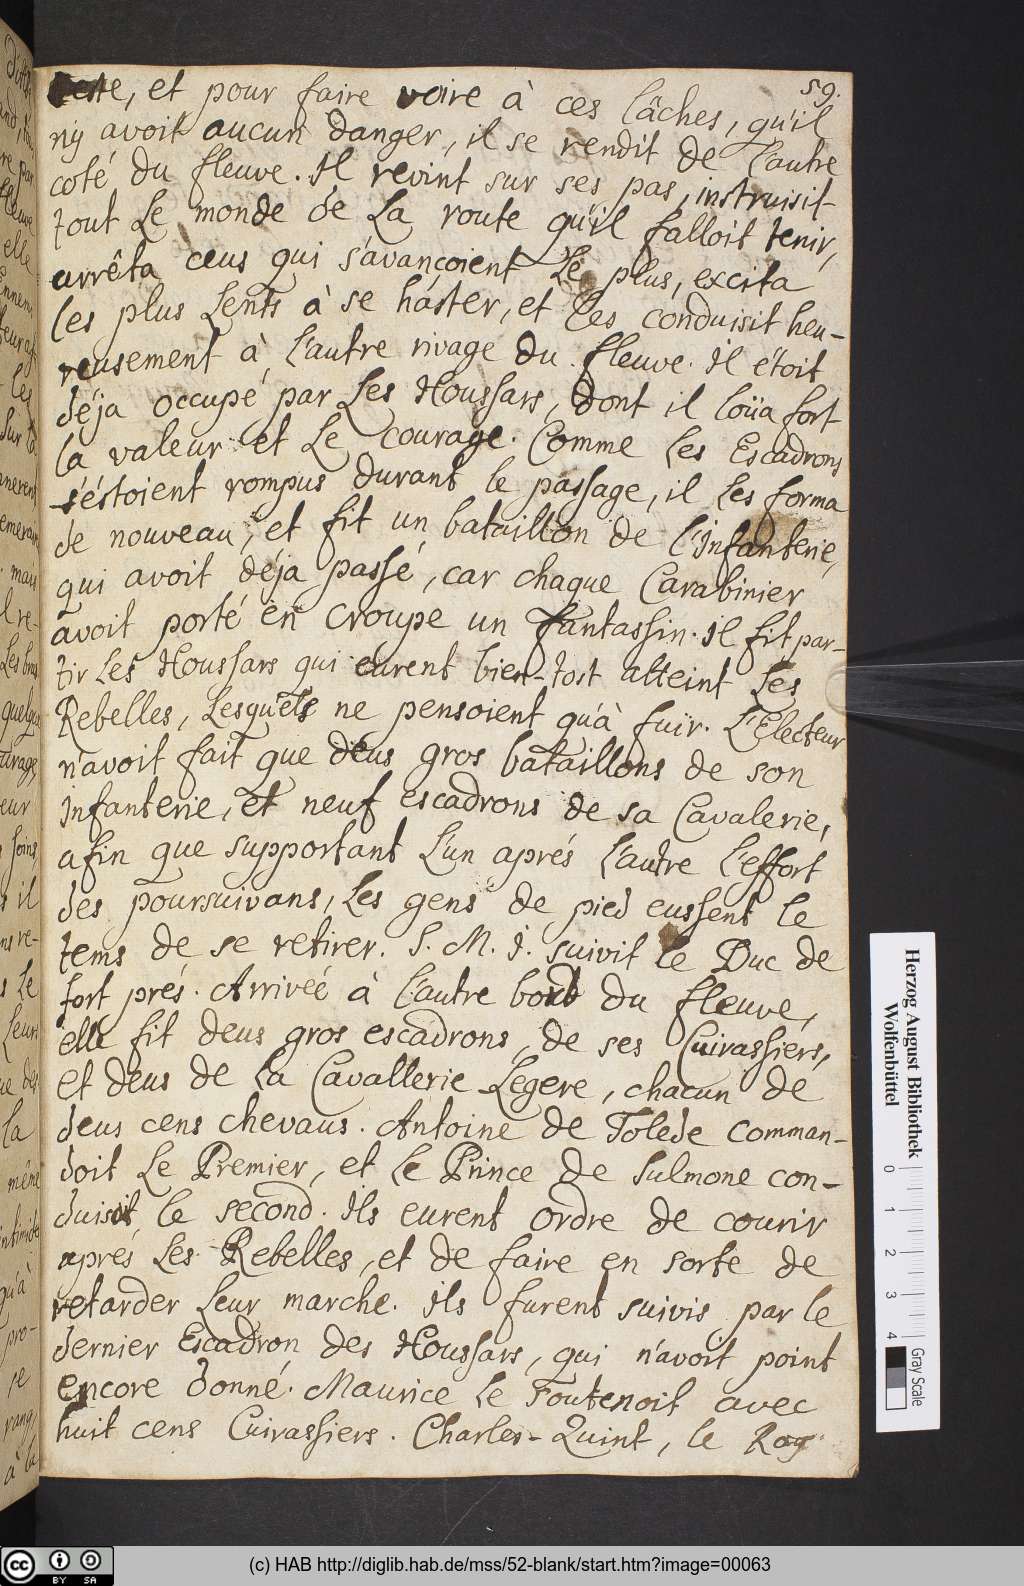 59.
reste, et pour faire voire à ces lâches, qu'il
n'y avoit aucun danger, il se rendit de l'autre
coté du fleuve. Il revint sur ses pas, instruisit
tout Le monde de La route qu'il falloit tenir,
arrêta ceus qui s'avançoient Le plus, excita
les plus Lents à se háster, et les conduisit heu-
reusement à L'autre rivage du fleuve. Il étoit
déja occupé par Les Houssars, dont il loüa fort
la valeur et Le courage. Comme les Escadrons
s'éstoient rompus durant le passage, il les forma
de nouveau, et fit un bataillon de l'Infanterie,
qui avoit déja passé, car chaque Carabinier
avoit porté en croupe un fantassin. Il fit par-
tir Les Houssars qui eurent bien-tost atteint Les
Rebelles, Lesquels ne pensoient qu'à fuïr. L'Electeur
n'avoit fait que deus gros bataillons de son
Infanterie, et neuf escadrons de sa Cavalerie,
afin que supportant L'un aprés l'autre l'effort
des poursuivans, Les gens de pied eussent le
tems de se retirer. S. M. I. suivit le Duc de
fort prés. Arrivéé à l'autre bord du fleuve,
elle fit deus gros escadrons, de ses Cuirassiers,
et deus de La Cavallerie Legere, chacun de
deus cens chevaus. Antoine de Tolede comman-
doit Le Premier, et Le Prince de Sulmone con-
duisoit le second. Ils eurent ordre de courir
aprés Les Rebelles, et de faire en sorte de
retarder Leur marche. Ils furent suivis par le
dernier Escadron des Houssars, qui n'avoit point
encore donné. Maurice Le soutenoit avec
huit cens Cuirassiers. Charles-Quint, le Roy
Herzog August Bibliothek
Wolfenbüttel
0 1 2 3 4
Gray Scale
CC BY SA
(c) HAB http://diglib.hab.de/mss/52-blank/start.htm?image=00063